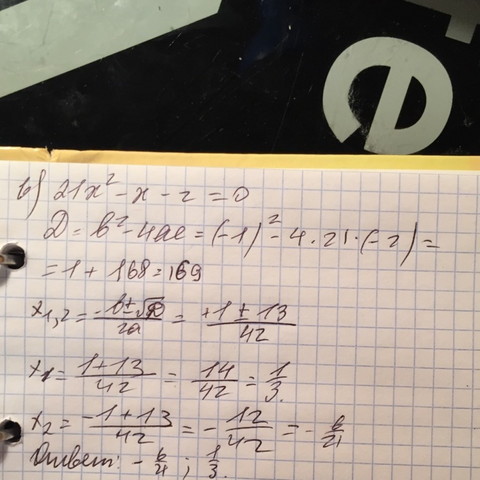 в) 21x² - x - 2 = 0
D = b² - 4ac = (-1)² - 4 · 21 · (-2) =
= 1 + 168 = 169
x₁,₂ = (-b ± √D)/2a = (+1 ± 13)/42
x₁ = (1 + 13)/42 = 14/42 = 1/3.
x₂ = (-1 + 13)/42 = -12/42 = -6/21
Ответ: -6/21; 1/3.